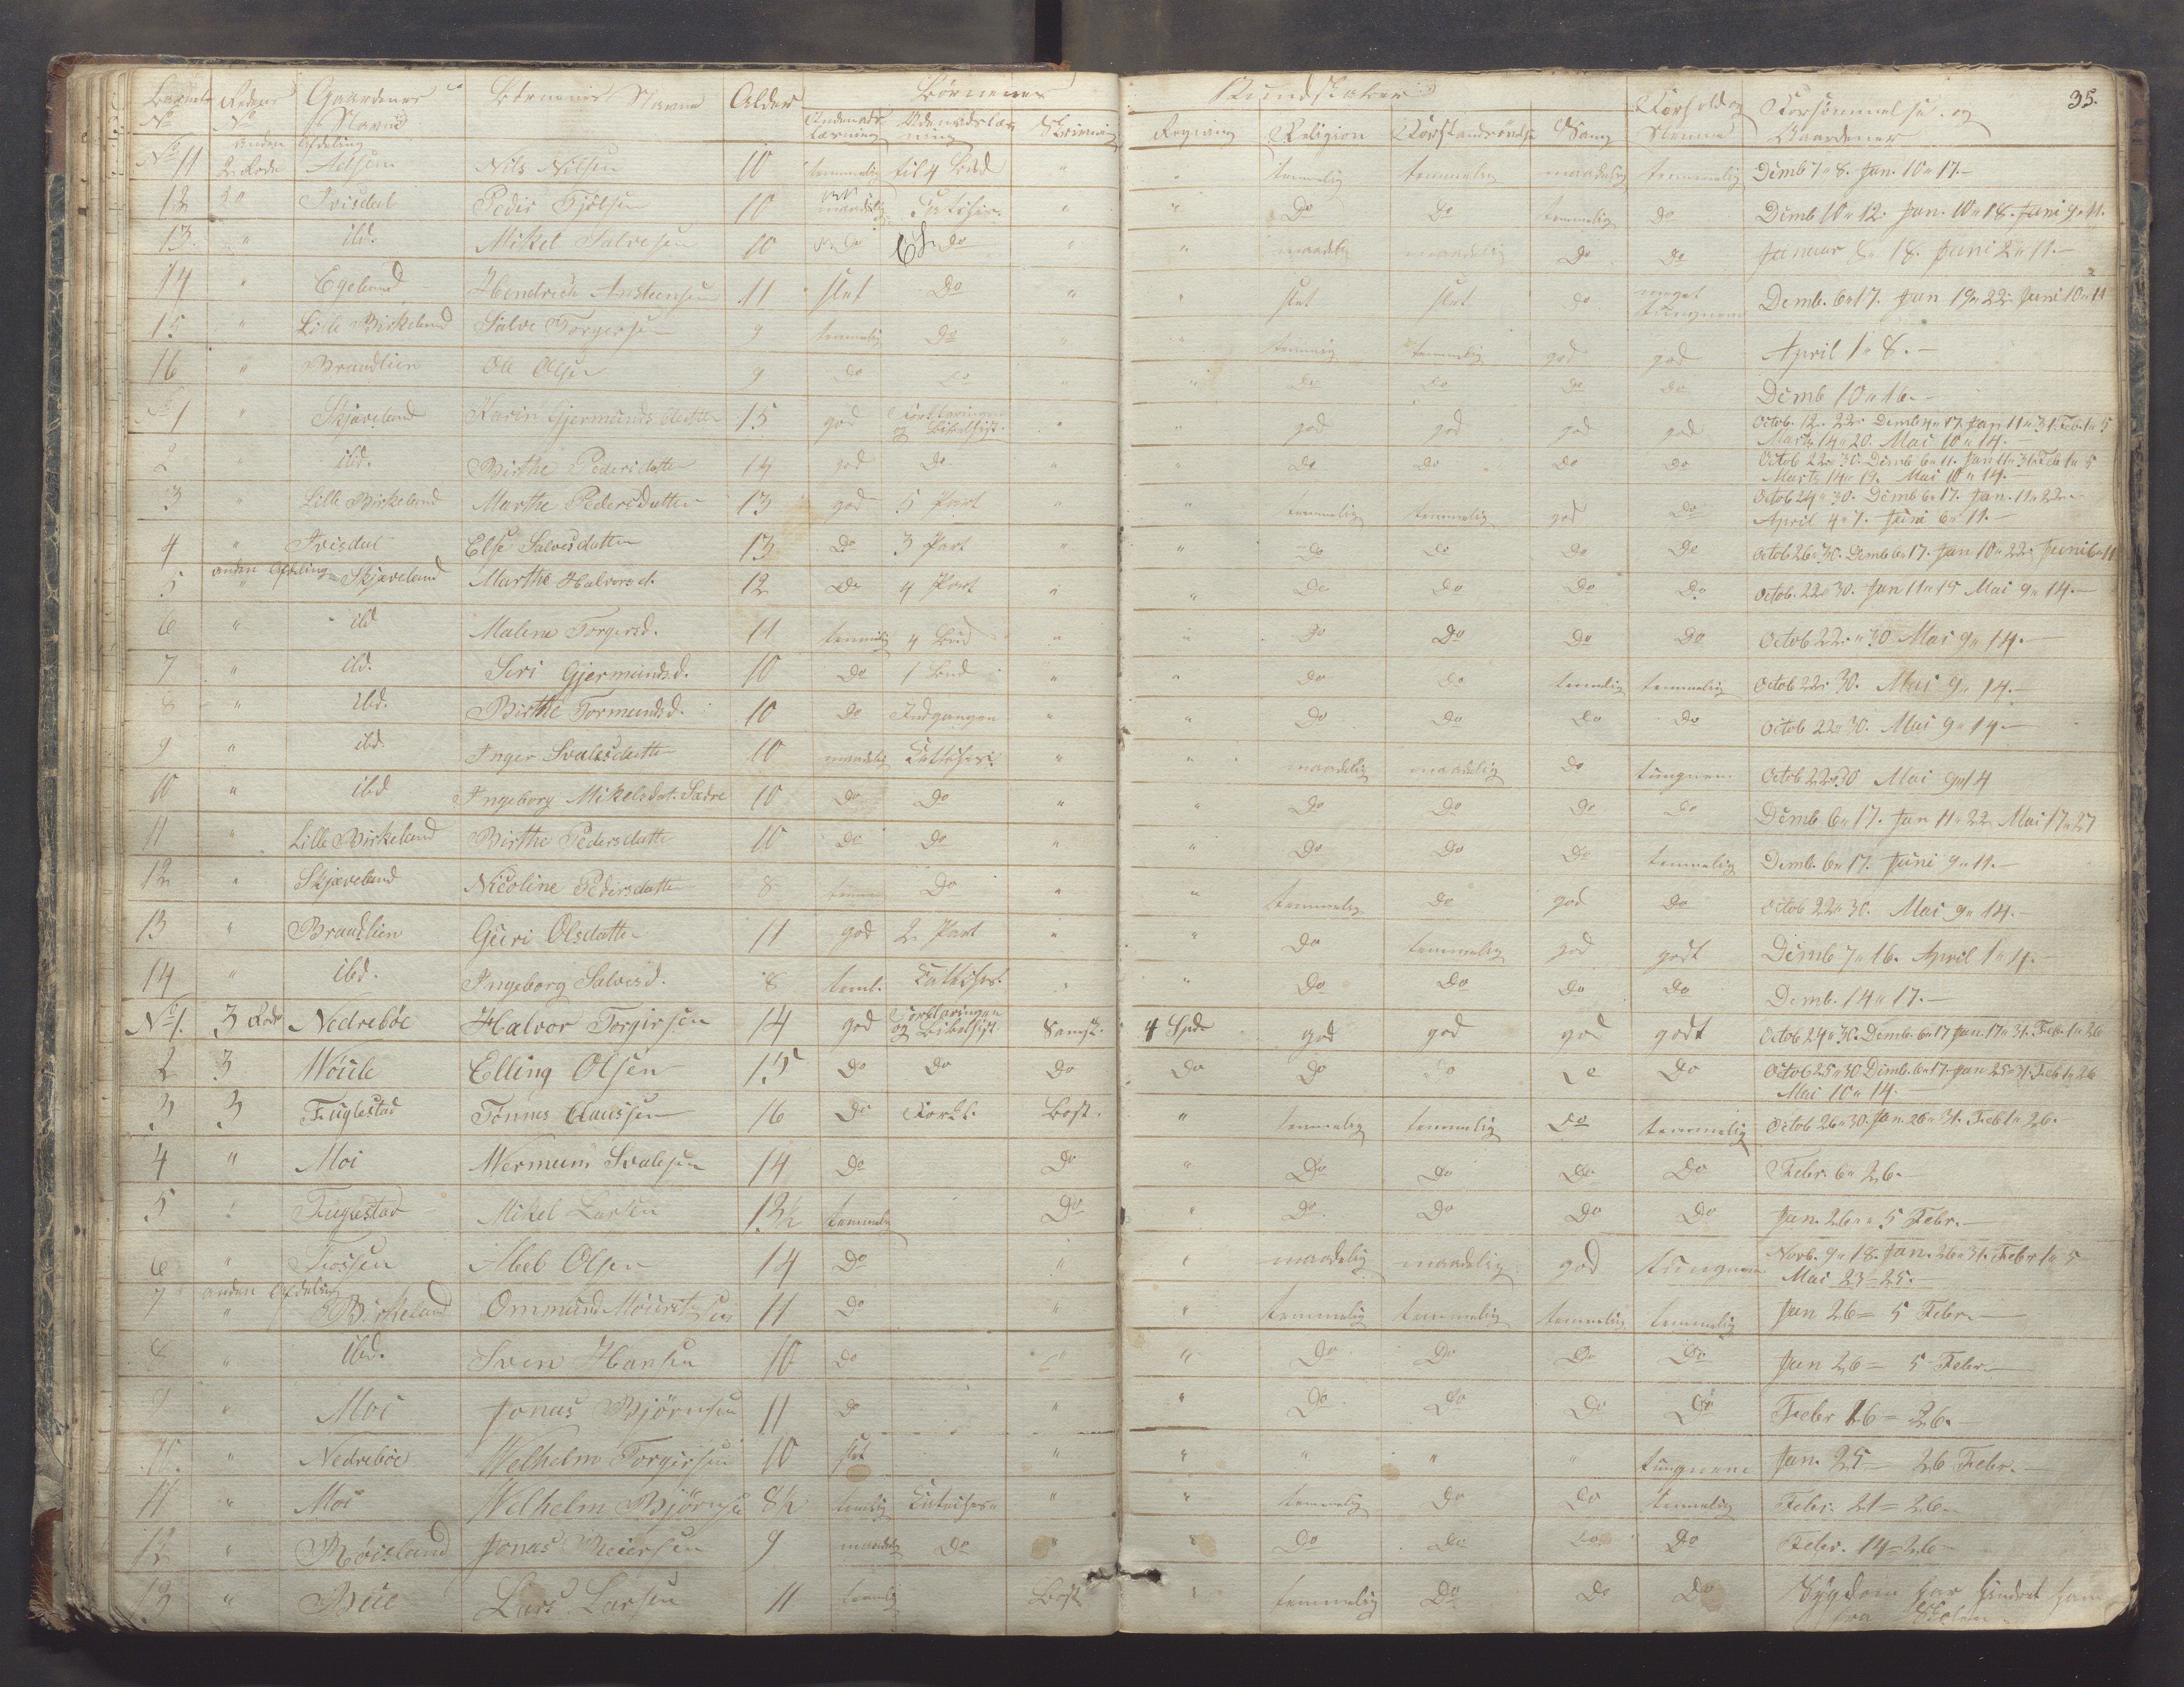 35.
Barnets Rodens Gaardenes Børnenes Navne Alder Børnenes Kundskaber Forhold og Forsømmelse og
No No Navne Indenads læsning Udenadslæsning Skrivning Regning Religion Forstandsøvelse Sang Evner Gaardenes
anden Afdeling
No 11 2 Rode Nils Nilsen 10 temmelig til 4 Bud " " temmelig temmelig maadelig temmelig Dcmb 7 " 8. Jan. 10 " 17.
12 2 " Ivisdal Peder 10 maadelig " " Do Do temmelig Do Dcmb 10 " 12. Jan. 10 " 18. Juni 9 " 11.
13. " ibd. Mikel Salvesen 10 Do Do " " maadelig maadelig Do Do Januar 8 " 18. Juni 2 " 11.
14 " Egeland Hendrich Anstensen 11 slet Do " " slet slet do meget tungnem Dcmb. 6 " 17. Jan 19 " 22. Juni 10 " 11
15 " Lille Birkeland Salve Torgersen 9 temmelig Do " " temmelig temmelig god god April 1 " 8.
16 " Braadlien Ole Olsen 9 Do Do " " Do Do Do Do Dcmb 10 " 16.
No 1 " Skjæveland Karin Gjermundsdatter 15 god Forklaringen og Bibelhist. " " god god god god Octob. 12 " 22. Dcmb 4 " 17. Jan 11 " 31. Feb. 1 " 5
Marts 14 " 20. Mai 10 " 14.
2 " ibd. Birthe Pedersdatter 14 god Do " " Do Do Do Do Octob 22 " 30. Dcmb 6 " 11. Jan 11 " 31. Feb 1 " 5
Marts 14 " 19. Mai 10 " 14.
3 " Lille Birkeland Marthe Pedersdatter 13 god 5 Part " " temmelig temmelig god Do Octob 24 " 30. Dcmb 6 " 17. Jan. 11 " 22.
April 4 " 7. Juni 6 " 11.
4 " Ivisdal Else Salvesdatter 13 Do 3 Part " " Do Do Do Do Octob 26 " 30. Dcmb 6 " 17. Jan 10 " 22. Juni 6 " 11
anden Afdeling
5 " Skjæveland Marthe Halvorsd. 12 Do 4 Part " " Do Do Do Do Octob. 22 " 30. Jan 11 " 15 Mai 9 " 14.
6 " ibd Malene Torgersd. 11 temmelig 4 Bud " " Do Do Do Do Octob 22 " 30 Mai 9 " 14.
7 " ibd. Siri Gjermundsd. 10 Do 1 Bud " " Do Do temmelig temmelig Octob 22 " 30. Mai 9 " 14.
8 " ibd. Birthe Tormundsd. 10 Do Indgangen " " Do Do Do Do Octob 22 " 30. Mai 9 " 14.
9 " ibd. Inger Svalesdatter 10 maadelig " " maadelig maadelig Do tungnem Octob 22 " 30 Mai 9 " 14
10 " ibd Ingeborg Mikelsdat. Sædre 10 Do Do " " Do Do Do Do Dcmb 6 " 17. Jan 11 " 22 Mai 17 " 27
11 " Lille Birkeland Birthe Pedersdatter 10 Do Do " " Do Do Do temmelig Dcmb. 6 " 17. Juni 9 " 11.
12 " Skjæveland Nicoline Pedersdatter 8 Do " " temmelig Do god Do Octob 22 " 30. Mai 9 " 14.
13 " Braadlien Guri Olsdatter 11 god 2 Part " " Do temmelig god godt Dcmb 7 " 16. April 1 " 4.
14 " ibd. Ingeborg Salvesd. 8 teml. " " Do Do Do Do Dcmb. 14 " 17.
No 1. 3 Rode Nedrebøe Halvor Torgersen 14 god Forklaringen og Bibelhist. 4 Spe god god god godt Octob 24 " 30. Dcmb. 6 " 17 Jan. 17 " 31. Feb. 1 " 26
2 3 Elling Olsen 15 Do Do Do Do Do Do Do Do Octob 25 " 30 Dcmb. 6 " 17. Jan 25 " 31. Feb 1 " 26
Mai 10 " 14.
3 3 Fuglestad Tønnes Clausen 16 Do Forkl. Bogst. " temmelig temmelig Do temmelig Octob 26 " 30. Jan 26 " 31. Feb 1 " 26.
4 " Moi Svalesen 14 Do Do " Do Do Do Do Febr. 6 " 26.
5 " Fuglestad Mikel Larsen 13½ temmelig Do " Do Do Do Do Jan. 26 " 5 Febr.
6 " Abel Olsen 14 Do " " maadelig maadelig god tungnem Novb. 9 " 18. Jan. 26 " 31. Febr 1 " 5
Mai 23 = 25.
anden Afdeling
7 " Birkeland Ommund Mouritsen 11 Do " " temmelig temmelig temmelig temmelig Jan 26 = 5 Febr.
8 " ibd. Sven Hansen 10 Do " " Do Do Do Do Jan 26 = 5 Febr.
9 " Moi Jonas Bjørnsen 11 Do " " Do Do Do Do Febr 16 = 26.
10. " Nedrebøe Welhelm Torgersen 10 slet " " " " " tungnem Jan. 25 = 26 Febr.
11 " Moi Welhelm Bjørnsen 8½ temlig " " temmelig Do Do temmelig Febr. 21 = 26.
12 " Røisland Jonas 9 maadelig Do " " Do Do Do Do Febr. 14 = 26
13 " Bue Lars Larsen 11 temmelig Bogst " temmelig Do Do Do Sygdom har hindret ham
fra Skolen